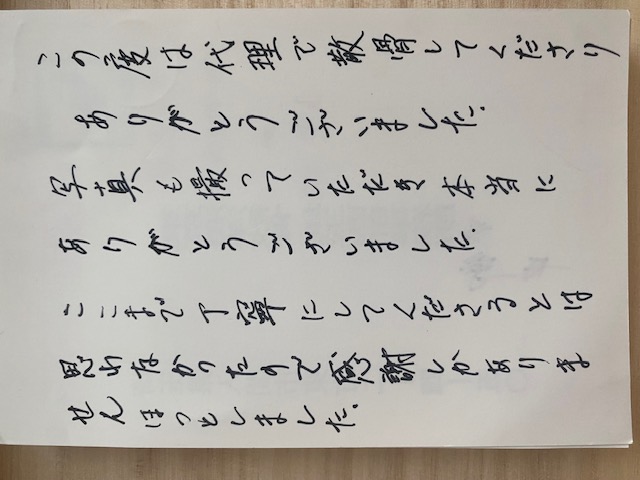 この度は代理で散骨してくださり
ありがとうございました。
写真も撮っていただき本当に
ありがとうございました。
ここまで丁寧にしてくださるとは
思わなかったので感謝しかありま
せんほっとしました。